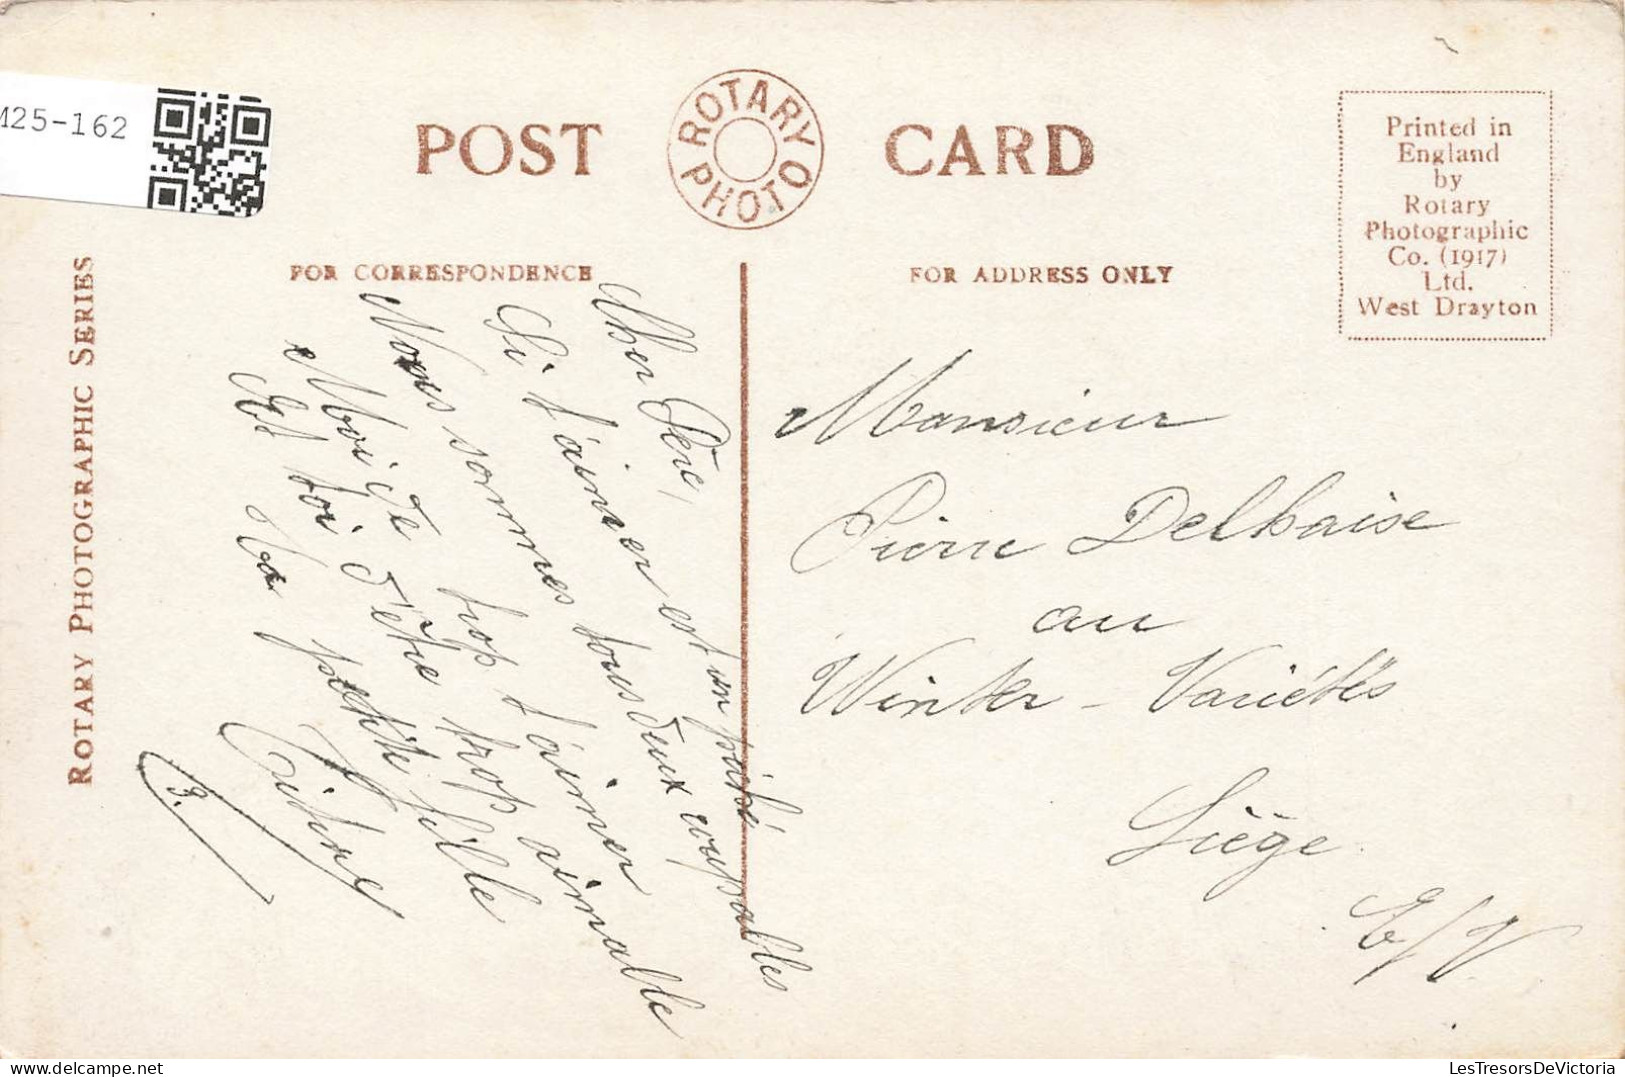 M25-162
POST CARD
ROTARY PHOTO
Printed in
England
by
Rotary
Photographic
Co. (1917)
Ltd.
West Drayton
ROTARY PHOTOGRAPHIC SERIES
FOR CORRESPONDENCE
FOR ADDRESS ONLY
Cher Père,
Si t'aimer est un péché
Nous sommes tous deux coupables
Moi de trop t'aimer
Et toi d'être trop aimable
Ta petite fille
Titine
Monsieur
Pierre Delbaise
au
Winter-Variétés
Liège
E/V.
LesTresorsDeVictoria